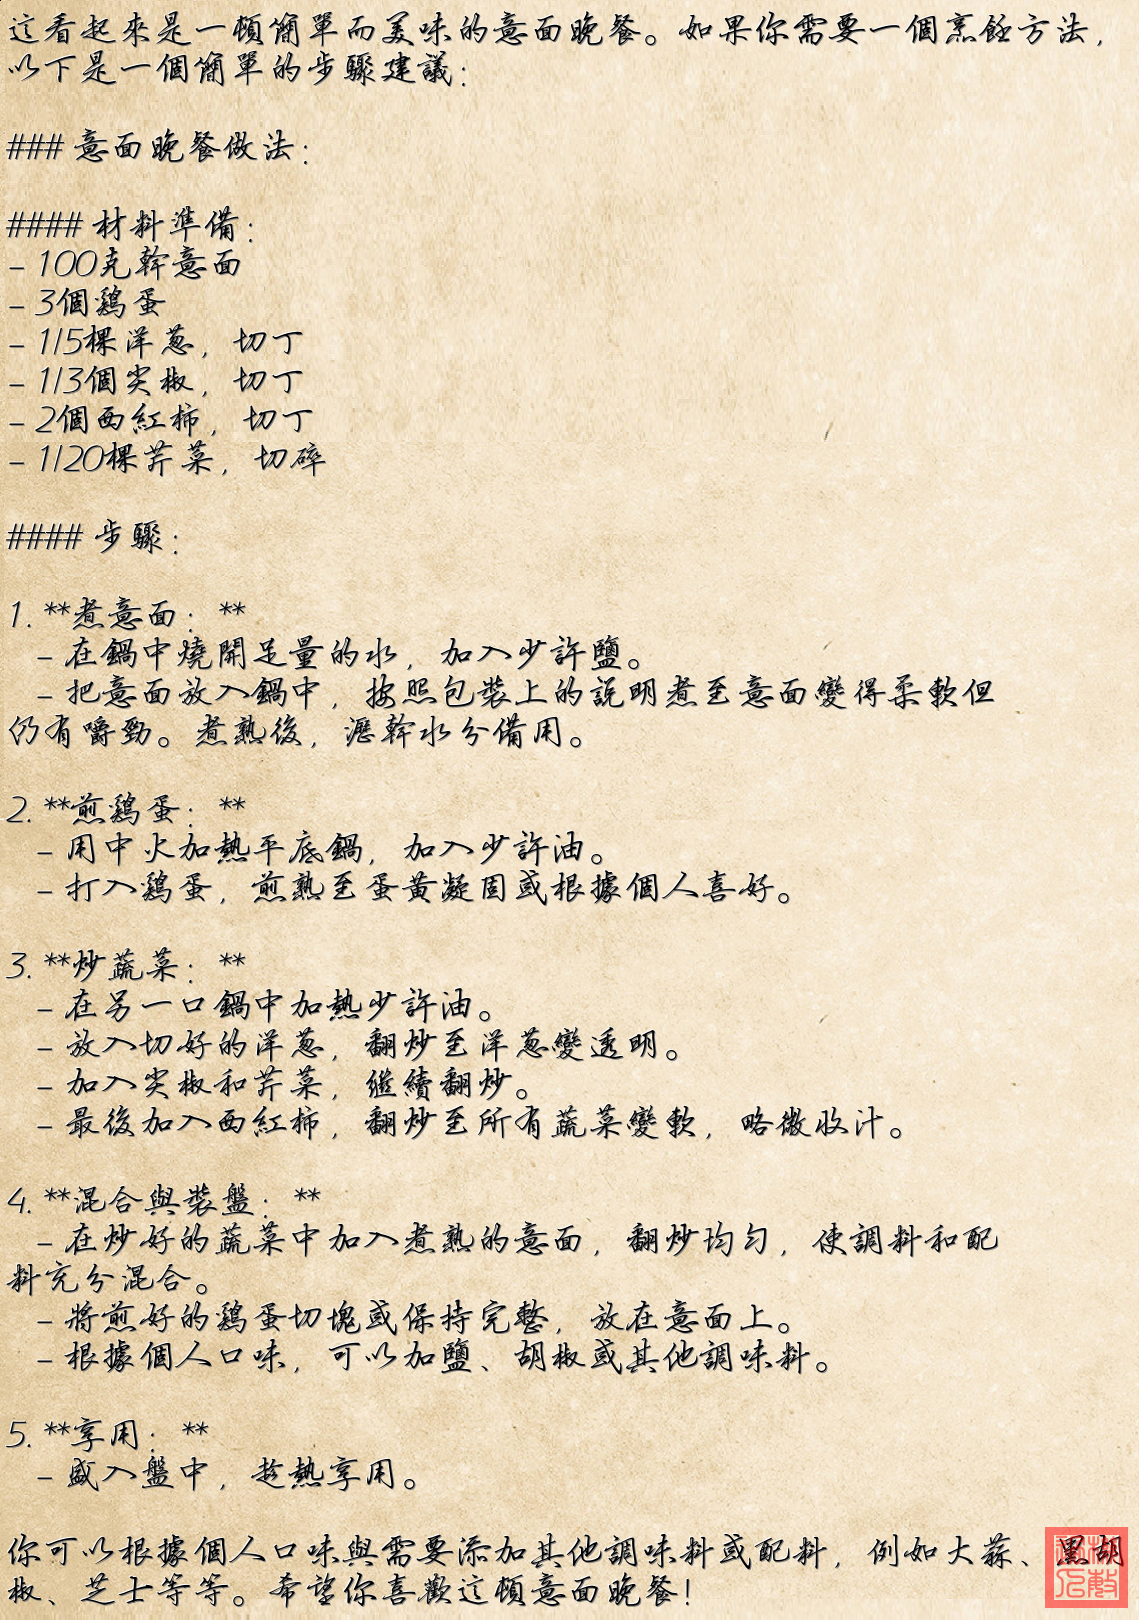 這看起來是一頓簡單而美味的意面晚餐。如果你需要一個烹飪方法，
以下是一個簡單的步驟建議：
### 意面晚餐做法：
#### 材料準備：
- 100克幹意面
- 3個鷄蛋
- 1/5棵洋葱，切丁
- 1/3個尖椒，切丁
- 2個西紅柿，切丁
- 1/20棵芹菜，切碎
#### 步驟：
1. **煮意面：**
- 在鍋中燒開足量的水，加入少許鹽。
- 把意面放入鍋中，按照包裝上的説明煮至意面變得柔軟但
仍有嚼勁。煮熟後，瀝幹水分備用。
2. **煎鷄蛋：**
- 用中火加熱平底鍋，加入少許油。
- 打入鷄蛋，煎熟至蛋黄凝固或根據個人喜好。
3. **炒蔬菜：**
- 在另一口鍋中加熱少許油。
- 放入切好的洋葱，翻炒至洋葱變透明。
- 加入尖椒和芹菜，繼續翻炒。
- 最後加入西紅柿，翻炒至所有蔬菜變軟，略微收汁。
4. **混合與裝盤：**
- 在炒好的蔬菜中加入煮熟的意面，翻炒均匀，使調料和配
料充分混合。
- 將煎好的鷄蛋切塊或保持完整，放在意面上。
- 根據個人口味，可以加鹽、胡椒或其他調味料。
5. **享用：**
- 盛入盤中，趁熱享用。
你可以根據個人口味與需要添加其他調味料或配料，例如大蒜、黑胡
椒、芝士等等。希望你喜歡這頓意面晚餐！